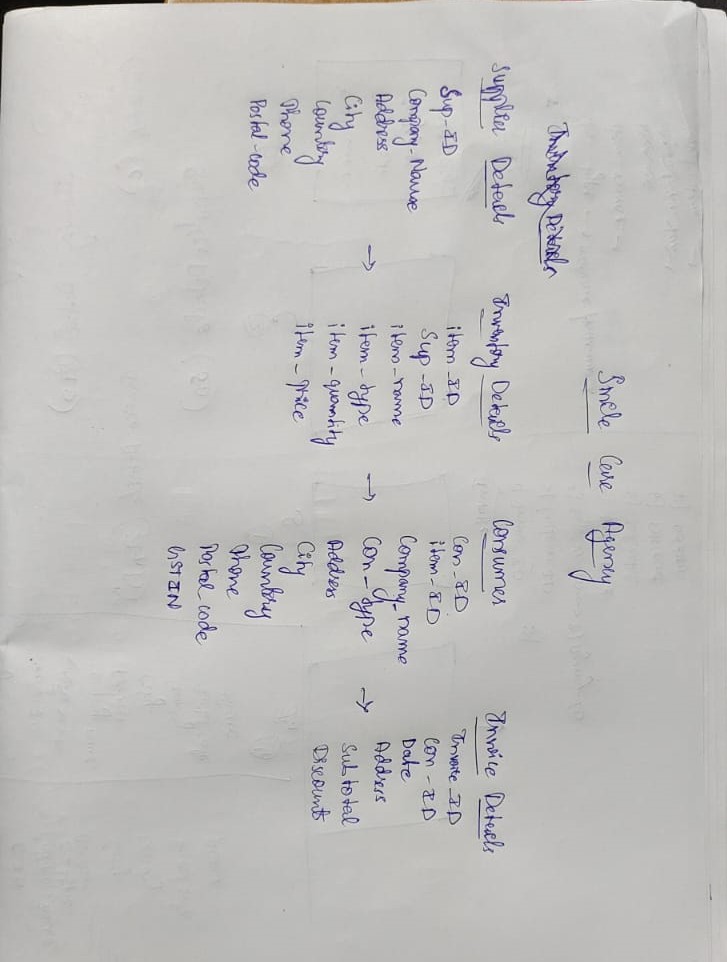 Smile Care Agency
Inventory Details
Supplier Details
Sup-ID
Company-Name
Address
City
Country
Phone
Postal-code
Inventory Details
item-ID
Sup-ID
item-name
item-type
item-quantity
item-price
Consumer
Con-ID
item-ID
Company_name
Con-type
Address
City
Country
Phone
Postal_code
GSTIN
Invoice Details
Invoice_ID
Con-ID
Date
Address
Subtotal
Discounts